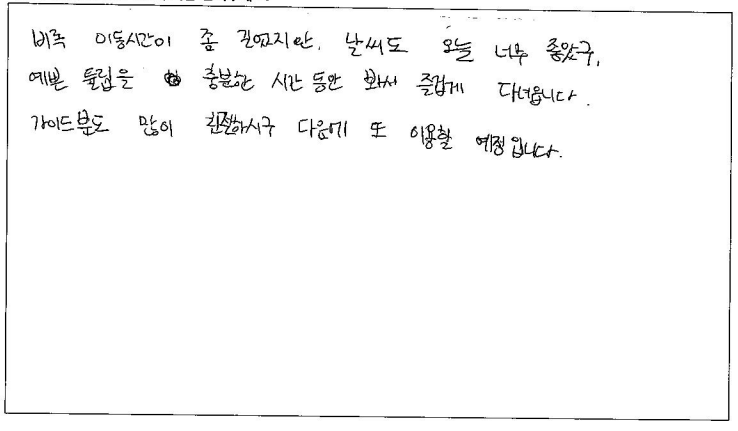 비록 이동시간이 좀 길었지만, 날씨도 오늘 너무 좋았구,
예쁜 튤립을 충분한 시간 동안 봐서 즐겁게 다녀옵니다.
가이드분도 많이 친절하시구 다음에 또 이용할 예정입니다.